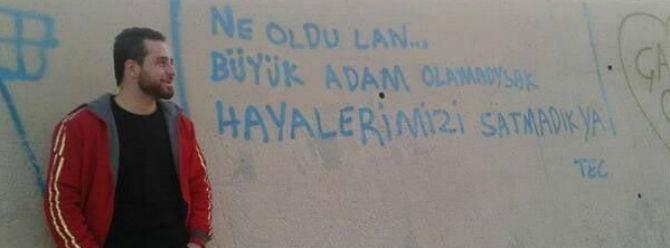 NE OLDU LAN...
BÜYÜK ADAM OLAMADYSAK
HAYALERIMIZI SATMADIK YA
TEC